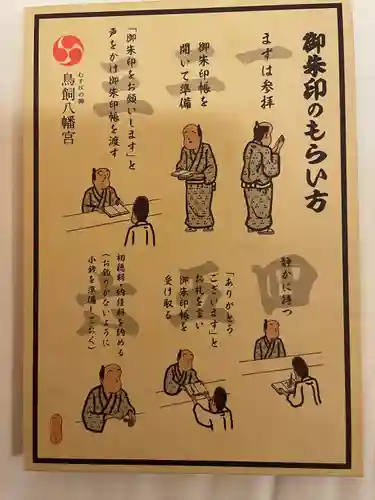 御朱印のもらい方
一
まずは参拝
二
御朱印帳を
開いて準備
三
「御朱印をお願いします」と
声をかけ御朱印帳を渡す
むすびの神
鳥飼八幡宮
四
静かに待つ
五
「ありがとう
ございます」と
お礼を言い
御朱印帳を
受け取る
六
初穂料・納経料を納める
（お釣りがないように
小銭を準備しておく）